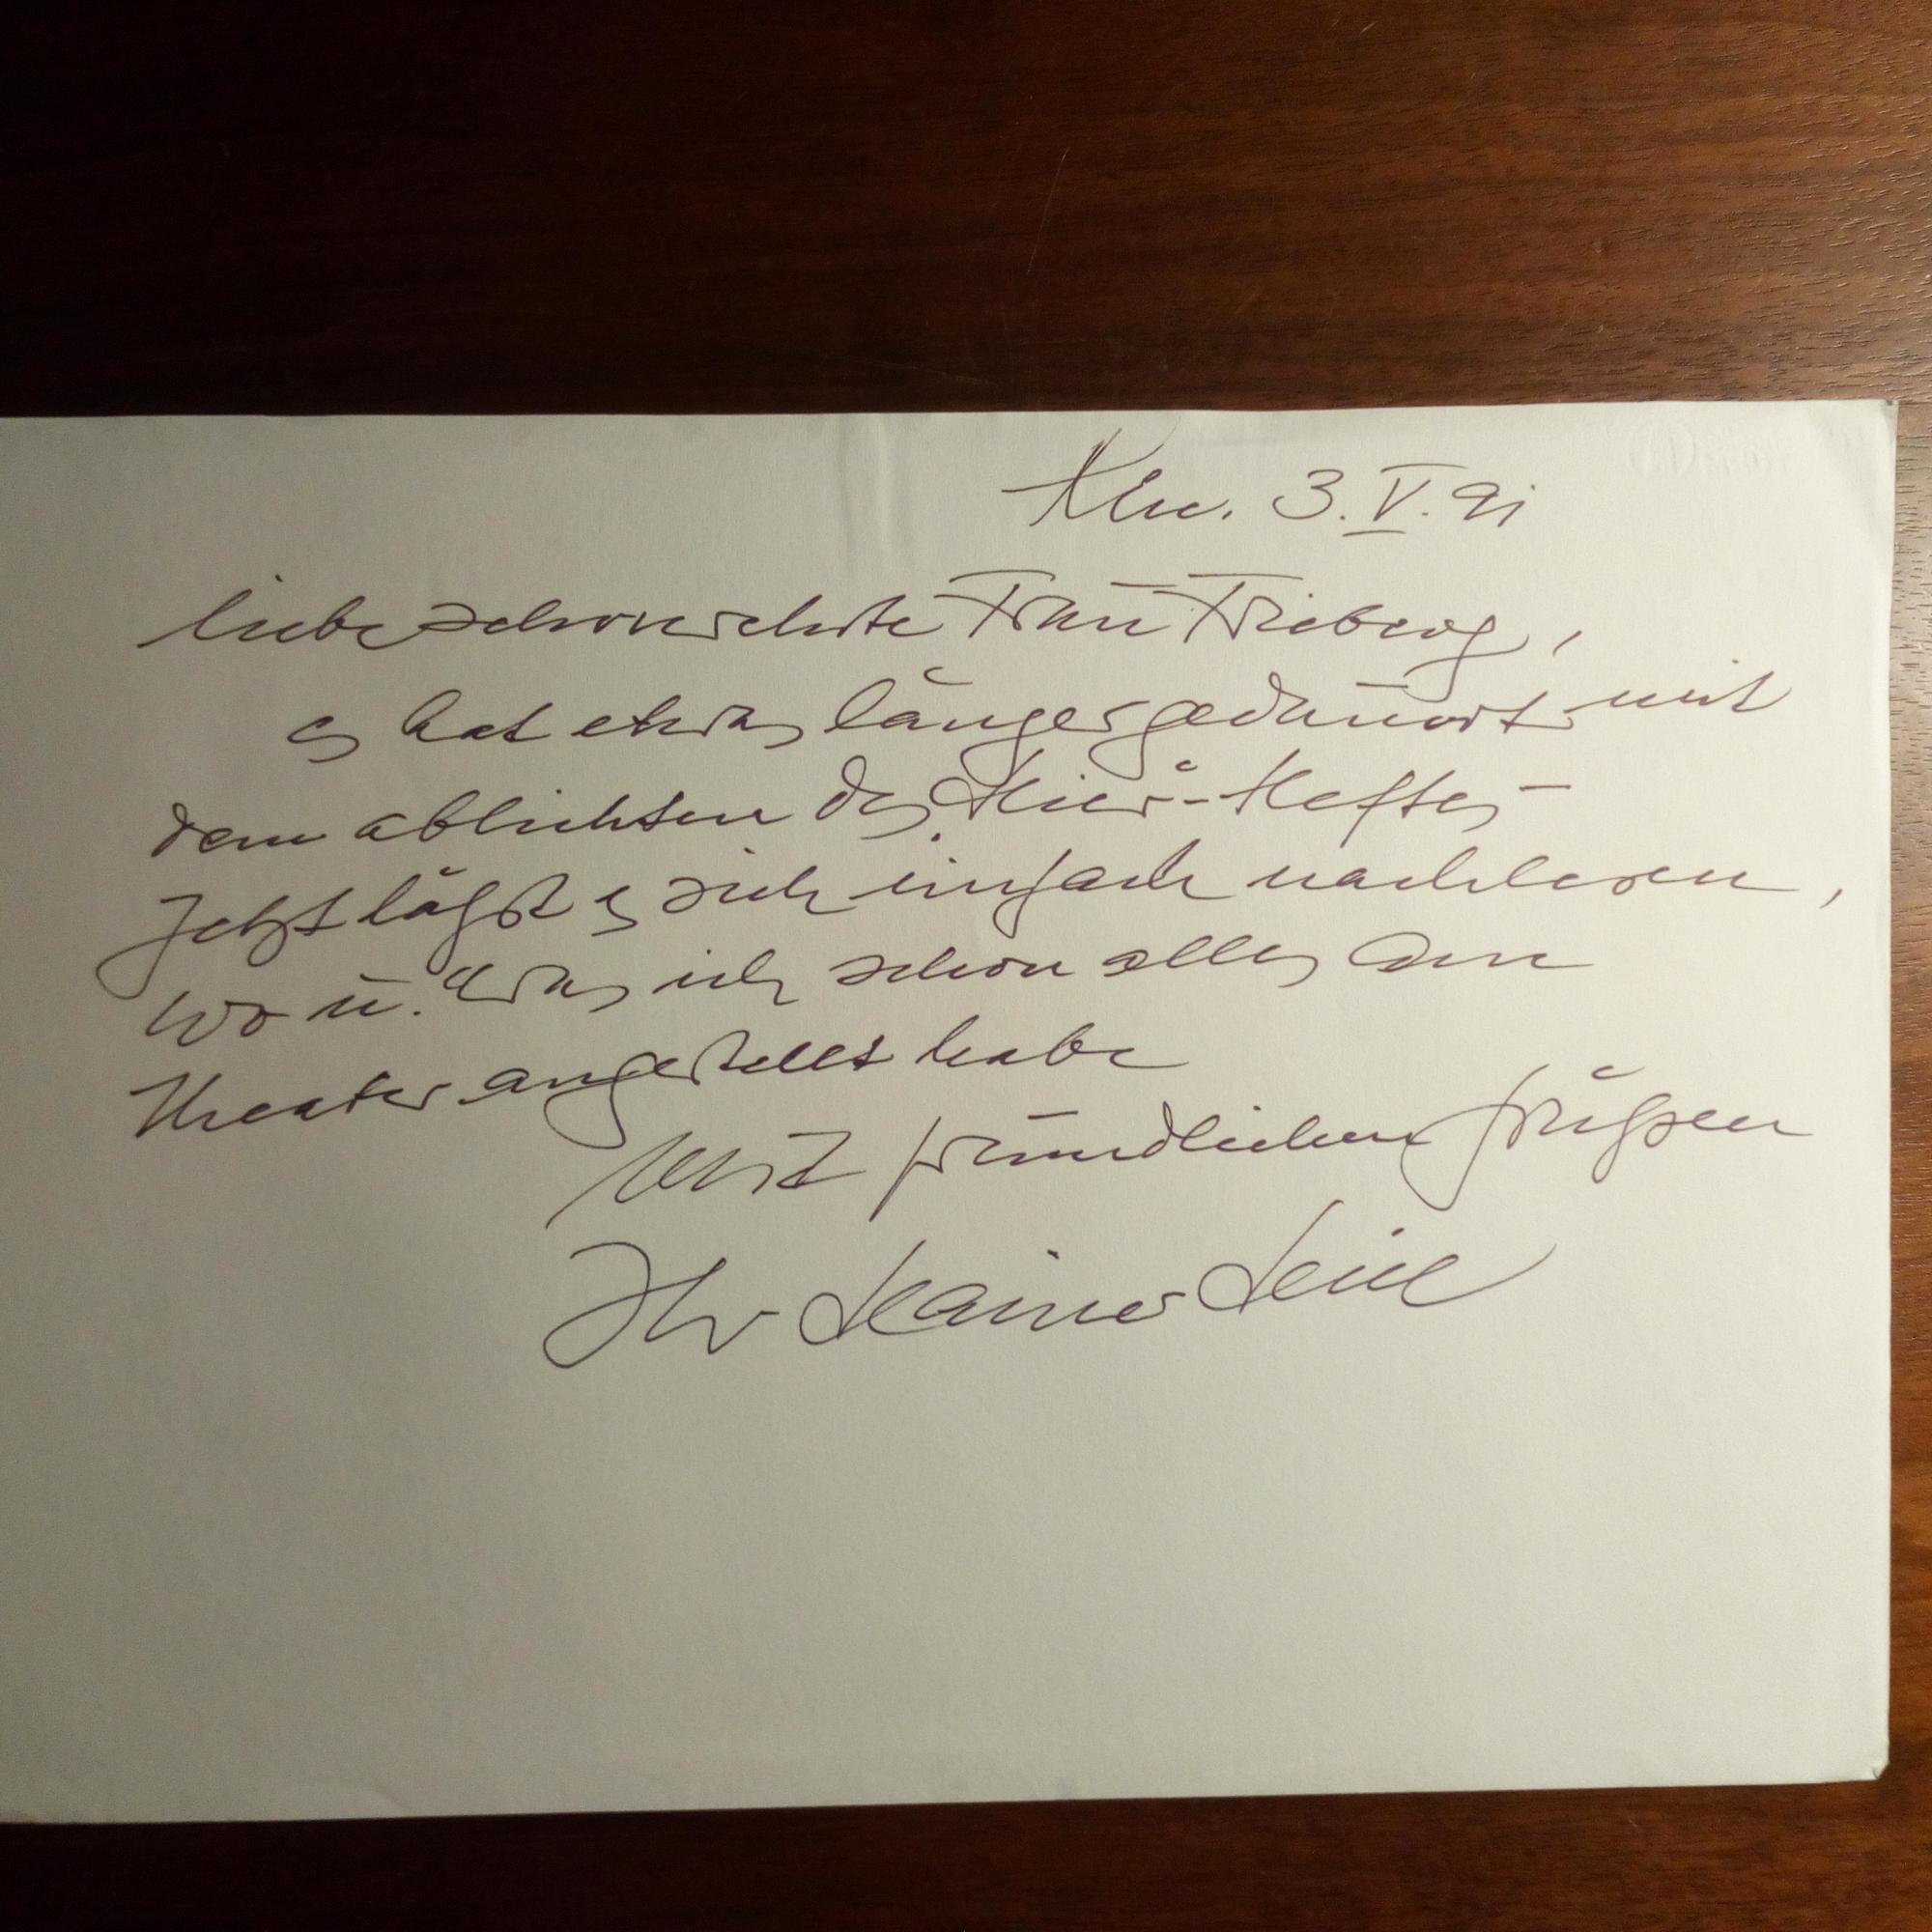 3.V.91
liebe sehr verehrte Frau
es hat etwas länger gedauert mit
dem ablichten des -Heftes –
Jetzt läßt es sich einfach nachlesen,
wo u. was ich schon alles am
Theater angestellt habe
Mit freundlichen Grüßen
Ihr Hainer Hill